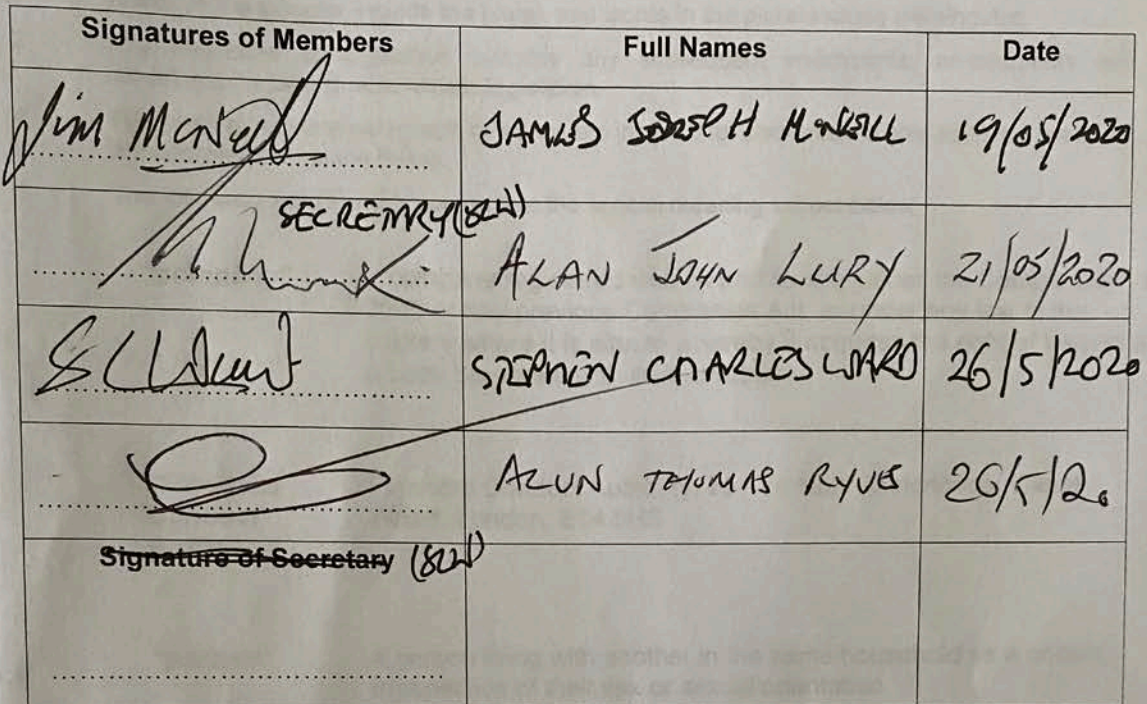 Signatures of Members Full Names Date
Jim McNeill JAMES JOSEPH McNEILL 19/05/2020
SECRETARY (SCW)
ALAN JOHN LURY 21/05/2020
SCWard STEPHEN CHARLES WARD 26/5/2020
ALUN THOMAS RYVES 26/5/20
Signature of Secretary (SCW)